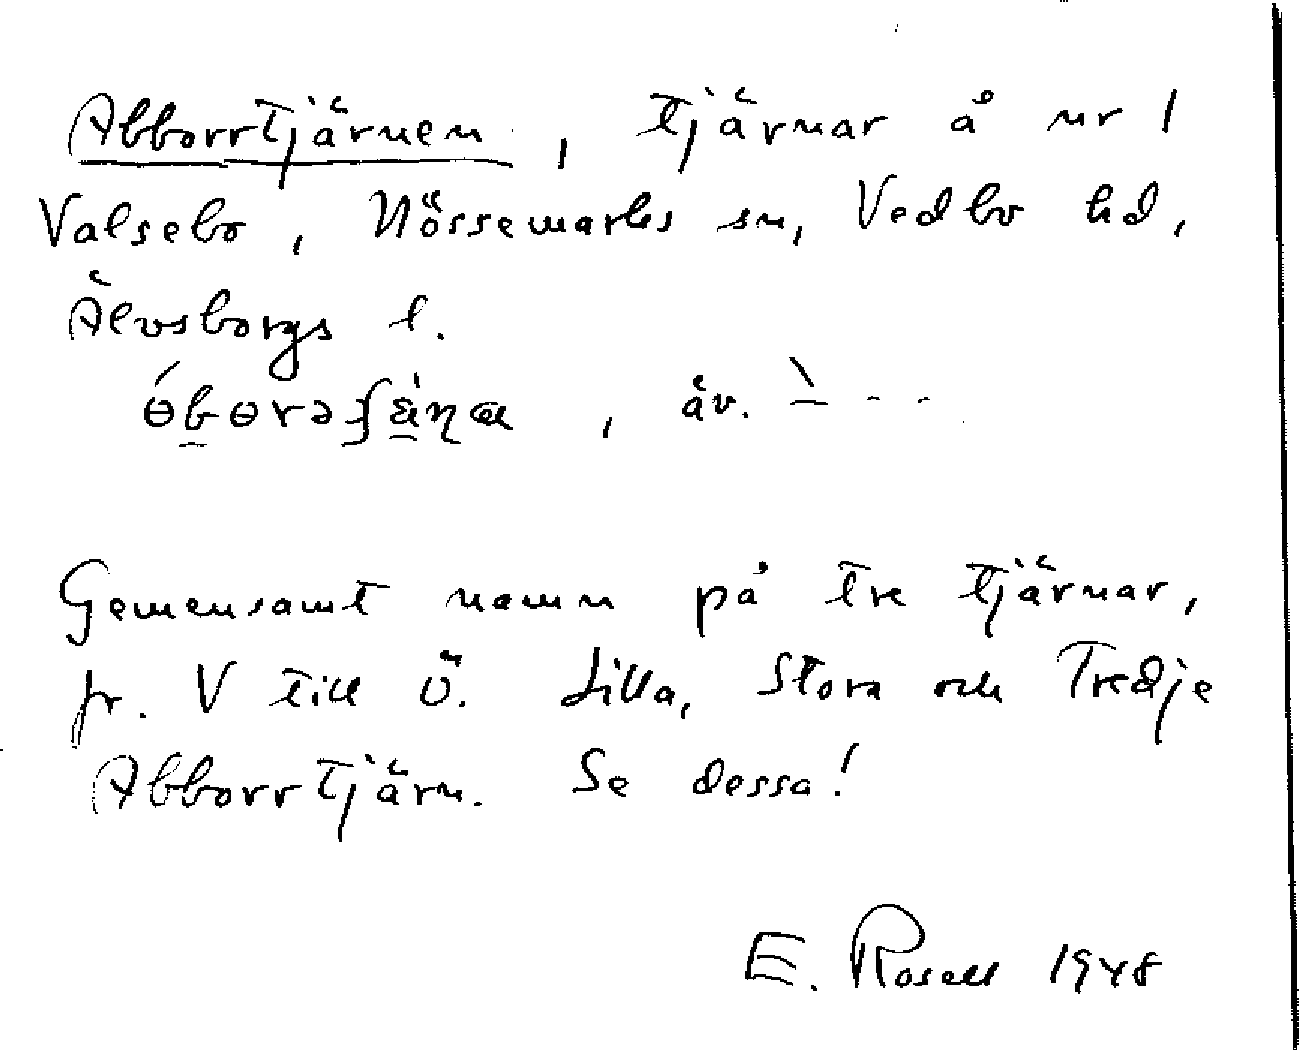 Abborrtjärnen, tjärnar å nr 1
Valsebo, Nössemarks sn, Vedbo hd,
Älvsborgs l.
, äv.
Gemensamt namn på tre tjärnar,
fr. V till Ö. Lilla, Stora och Tredje
Abborrtjärn. Se dessa!
E. Rosell 1948